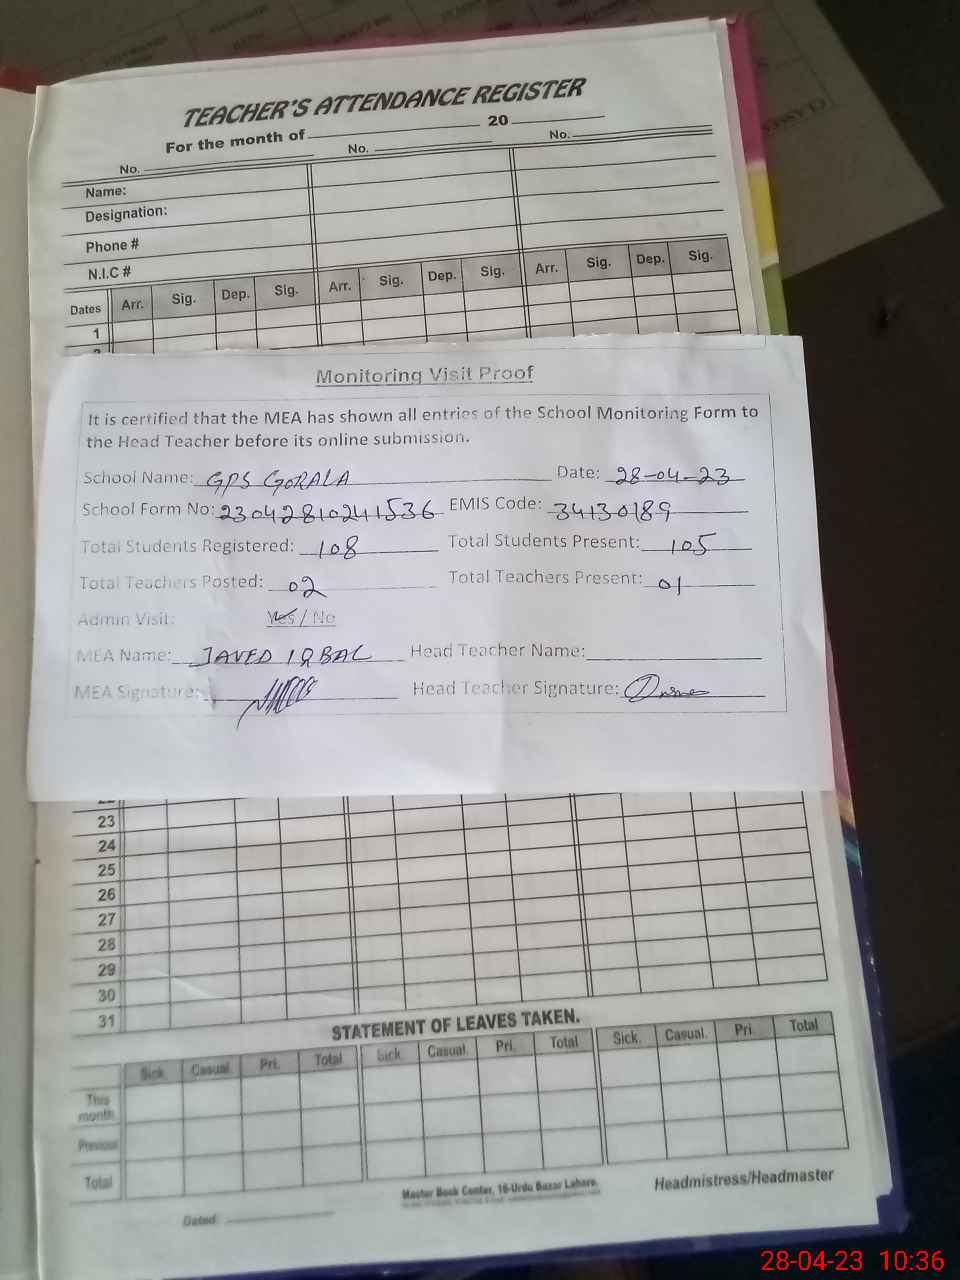 TEACHER'S ATTENDANCE REGISTER
For the month of 20
No. No. No.
Name:
Designation:
Phone #
N.I.C #
Dates Arr. Sig. Dep. Sig. Arr. Sig. Dep. Sig. Arr. Sig. Dep. Sig.
1
Monitoring Visit Proof
It is certified that the MEA has shown all entries of the School Monitoring Form to
the Head Teacher before its online submission.
School Name: GPS GORALA Date: 28-04-23
School Form No: 23042810241536 EMIS Code: 34130189
Total Students Registered: 108 Total Students Present: 105
Total Teachers Posted: 02 Total Teachers Present: 01
Admin Visit: Yes / No
MEA Name: JAVED IQBAL Head Teacher Name:
MEA Signature: Head Teacher Signature:
23
24
25
26
27
28
29
30
31
STATEMENT OF LEAVES TAKEN.
Sick. Casual. Pri. Total Sick. Casual. Pri. Total Sick. Casual. Pri. Total
This
month
Previous
Total
Master Book Center, 16-Urdu Bazar Lahore.
Headmistress/Headmaster
Dated:
28-04-23 10:36